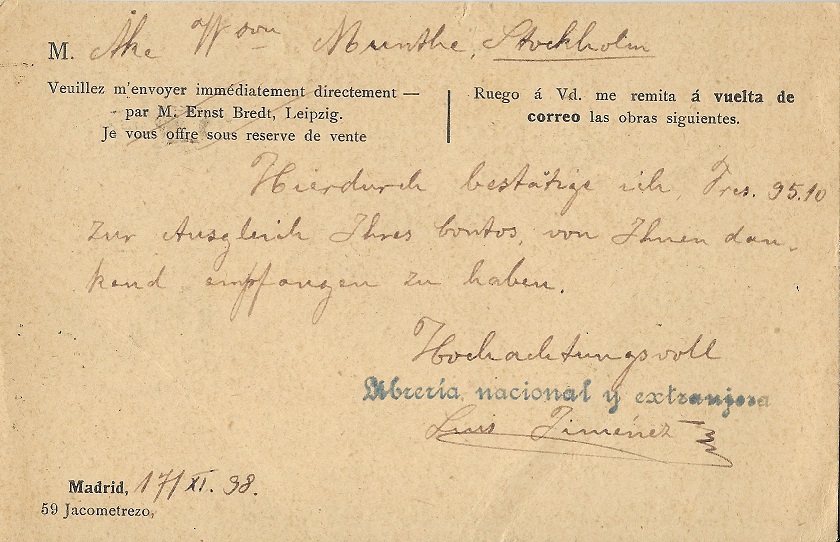 M. Åke W:son Munthe, Stockholm
Veuillez m'envoyer immédiatement directement —
par M. Ernst Bredt, Leipzig.
Je vous offre sous reserve de vente
Ruego á Vd. me remita á vuelta de
correo las obras siguientes.
Hierdurch bestätige ich, Frcs. 95.10
zur Ausgleich Ihres Contos, von Ihnen dan-
kend empfangen zu haben.
Hochachtungsvoll
Librería nacional y extranjera
Luis Jiménez
Madrid, 17/XI. 98.
59 Jacometrezo,